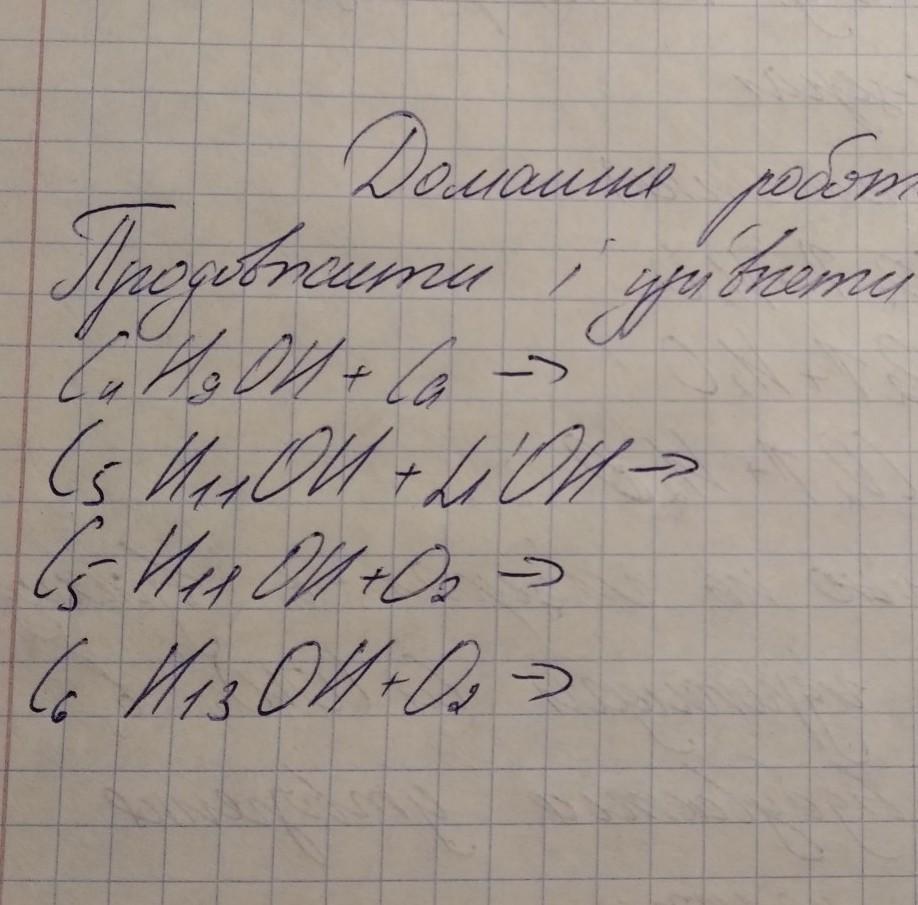 Домашнє робот
Продовжити і зрівняти
C₄H₉OH + Ca →
C₅H₁₁OH + LiOH →
C₅H₁₁OH + O₂ →
C₆H₁₃OH + O₂ →